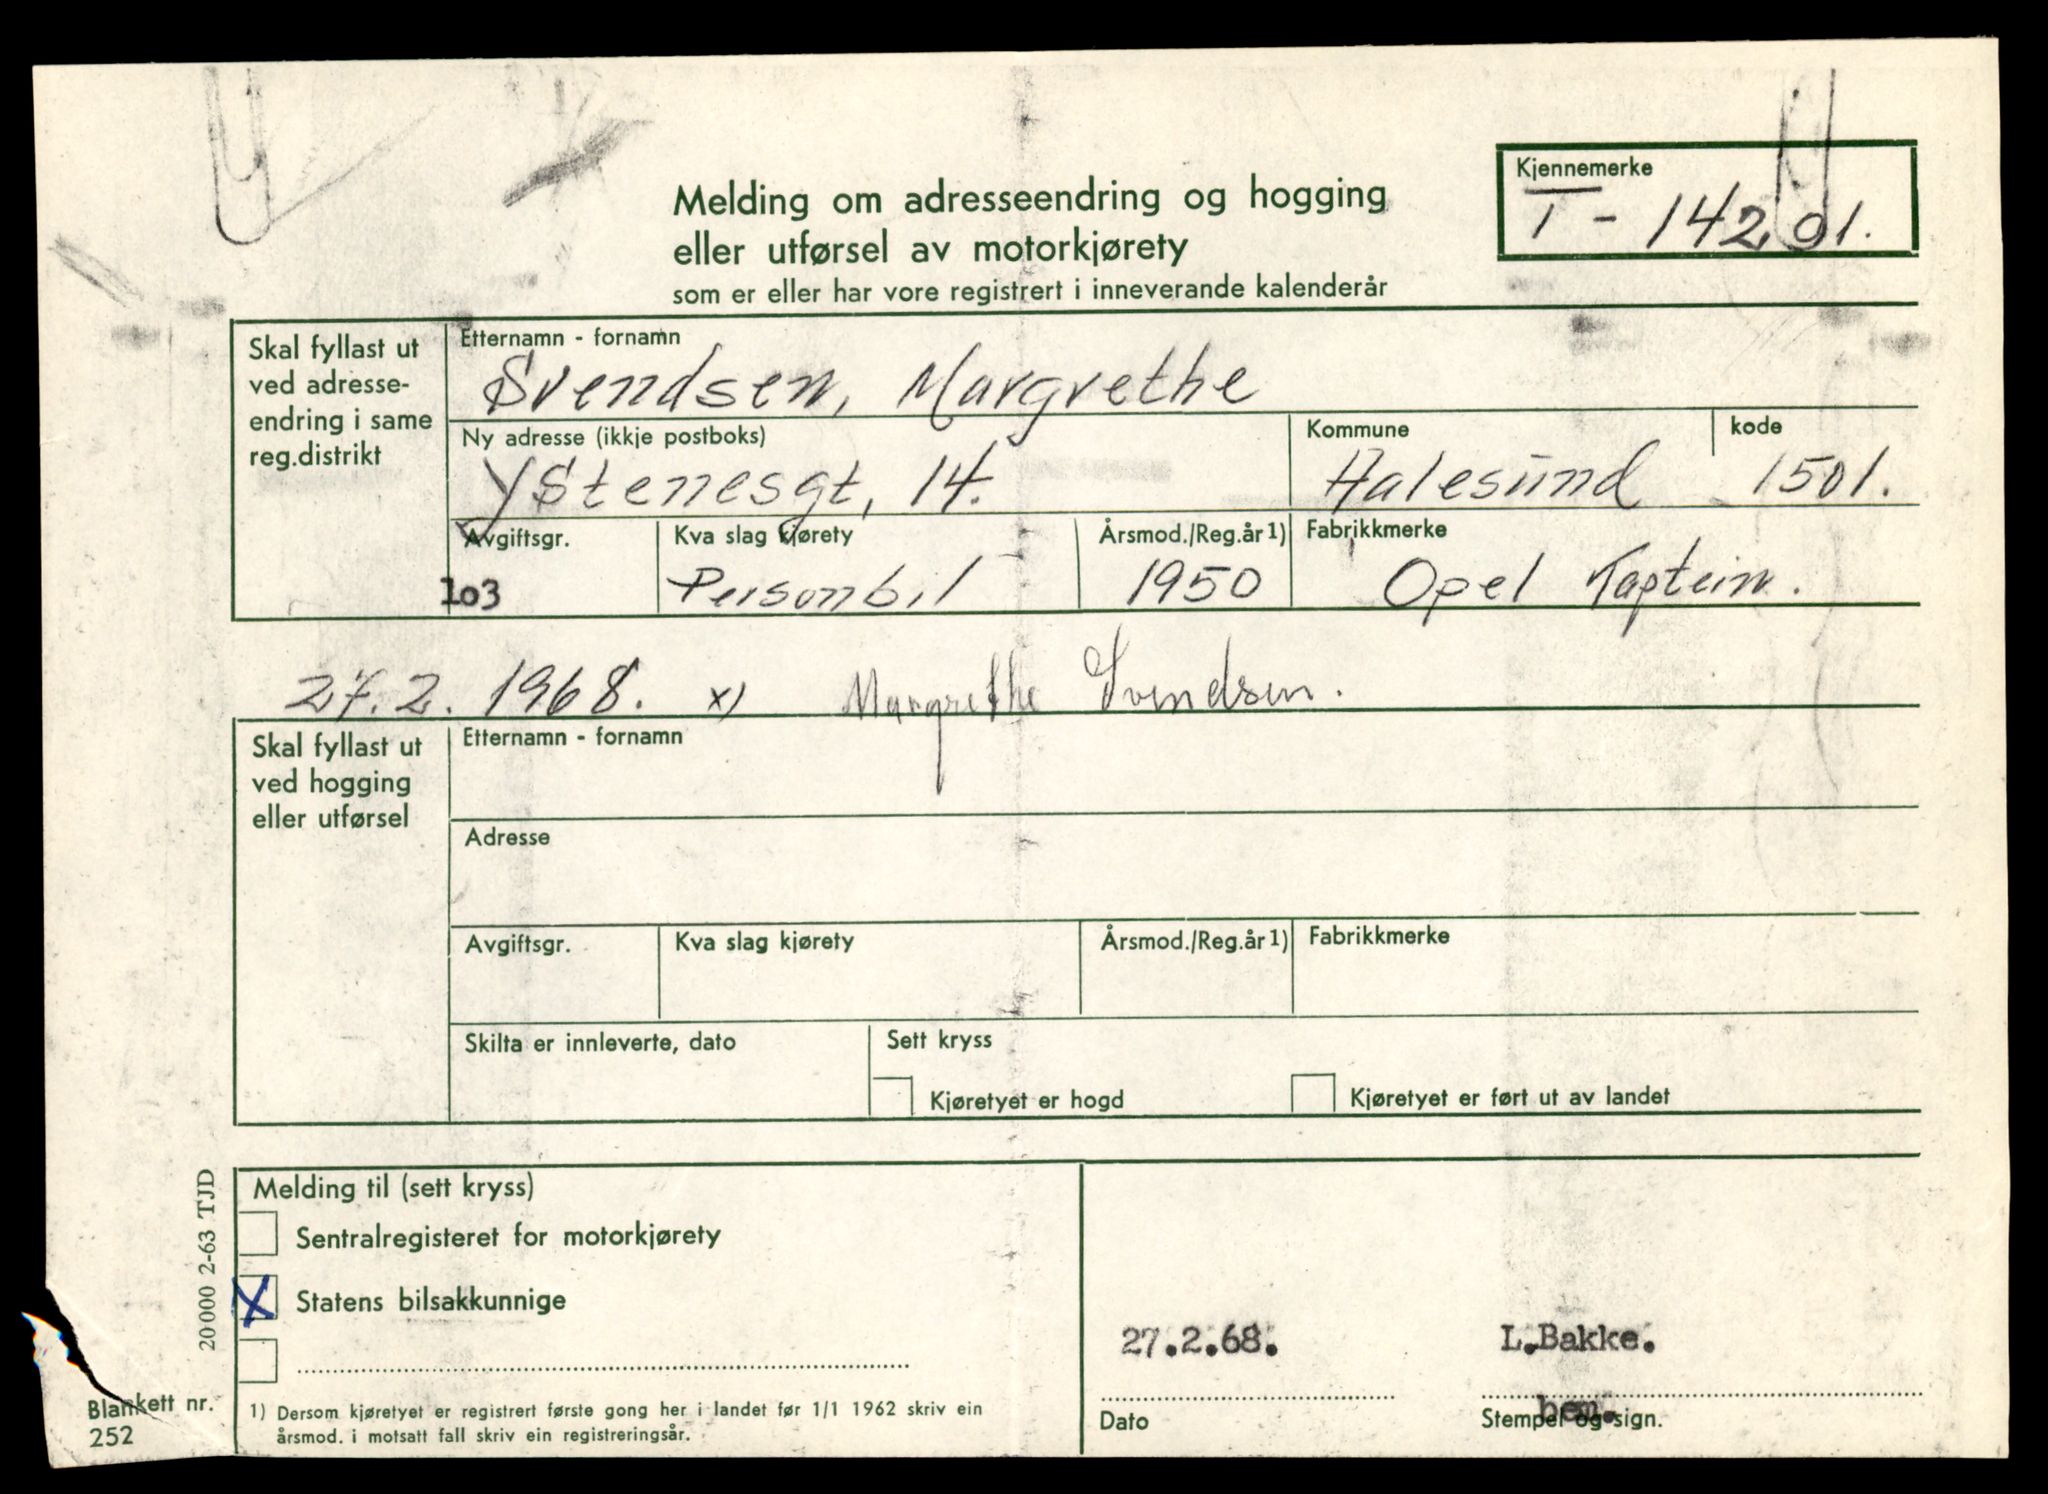 Kjennemerke
T - 14201.
Melding om adresseendring og hogging
eller utførsel av motorkjørety
som er eller har vore registrert i inneverande kalenderår
Skal fyllast ut
ved adresse-
endring i same
reg.distrikt
Etternamn - fornamn
Svendsen, Margrethe
Ny adresse (ikkje postboks)
Ystenesgt, 14.
Kommune
Aalesund
kode
1501.
Avgiftsgr.
1o3
Kva slag kjørety
Personbil
Årsmod./Reg.år 1)
1950
Fabrikkmerke
Opel Kaptein.
27.2. 1968. x) Margrethe Svendsen.
Skal fyllast ut
ved hogging
eller utførsel
Etternamn - fornamn
Adresse
Avgiftsgr.
Kva slag kjørety
Årsmod./Reg.år 1)
Fabrikkmerke
Skilta er innleverte, dato
Sett kryss
Kjøretyet er hogd
Kjøretyet er ført ut av landet
Melding til (sett kryss)
Sentralregisteret for motorkjørety
X Statens bilsakkunnige
27.2.68.
Dato
L.Bakke.
bem.
Stempel og sign.
1) Dersom kjøretyet er registrert første gong her i landet før 1/1 1962 skriv ein
årsmod. i motsatt fall skriv ein registreringsår.
20000 2-63 TJD
Blankett nr.
252